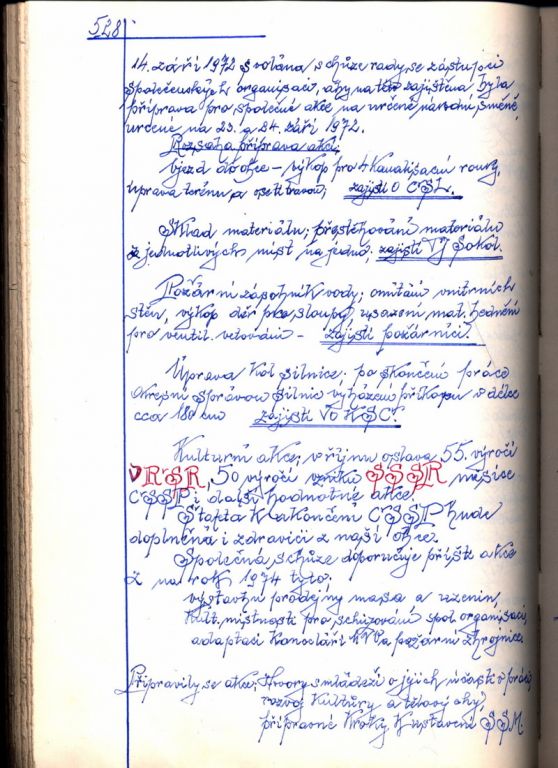 528
14. září 1972 svolána schůze rady se zástupci
společenských organisací, aby na zajištěna byla
příprava pro společné akce na určené národní směně,
určené na 23. a 24. září 1972.
Rozsah a příprava akcí:
Vjezd do obce – výkop pro 4 kanalisační roury,
úprava terénu a osetí travou, zajistí O ČSŽ.
Sklad materiálu; přestěhování materiálu
z jednotlivých míst na jedno, zajistí TJ Sokol.
Požární zásobník vody; omítání vnitřních
stěn, výkop děr pro sloupy, usazení mat. hednění
pro ventil. – zajistí požárníci.
Úprava kol silnice; po skončení práce
Okresní správou silnic vyházení příkopu v délce
cca 180 cm zajistí VO KSČ.
Kulturní akce; v říjnu oslava 55. výročí
VŘSR, 50 výročí vzniku SSSR, měsíce
ČSSP i další hodnotné akce.
Štafeta k zakončení ČSSP bude
doplněna i zdravicí z naší obce.
Společná schůze doporučuje příští akce
Z na rok 1974 tyto:
výstavbu prodejny masa a uzenin,
Kult. místnosti pro schůzování spol. organisací,
adaptaci Kanceláří MNV a požární zbrojnice.
Připravily se akce; Hovory s mládeží o jejich účasti v práci
rozvoj Kultury a tělovýchy,
přípravné Kroky K ustavení SSM